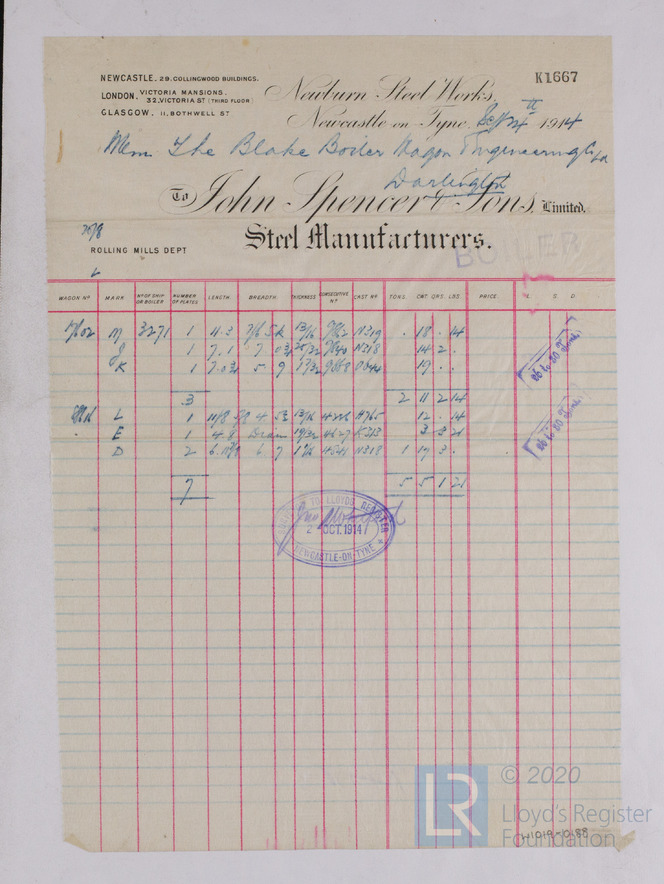 NEWCASTLE. 29. COLLINGWOOD BUILDINGS.
LONDON. VICTORIA MANSIONS.
32, VICTORIA ST (THIRD FLOOR)
GLASGOW. 11, BOTHWELL ST
K1667
Newburn Steel Works,
Newcastle-on-Tyne, 24 1914
The Blake Boiler Wagon & Engineering Co Ld
Darlington
To John Spencer & Sons, Limited.
Steel Manufacturers.
ROLLING MILLS DEPT
BOILER
WAGON Nº MARK Nº OF SHIP OR BOILER NUMBER OF PLATES LENGTH BREADTH THICKNESS CONSECUTIVE Nº CAST Nº TONS. CWT. QRS. LBS. PRICE S D
M 3271 1 11.3 13/16 N319 . 18 . 14
J 1 7.1 N318 14 2 .
K 1 5 9 19 . .
3 2 11 2 14
L 1 13/16 12 . 14
E 1 4.8 19/32 4627 3 3 21
D 2 6 7 4541 N318 1 19 3 .
7 5 5 1 21
26 to 30 Tons.
26 to 30 Tons.
TO LLOYD'S REGISTER
2 OCT. 1914
NEWCASTLE-ON-TYNE
LR
© 2020
Lloyd's Register
Foundation
W1019-0188